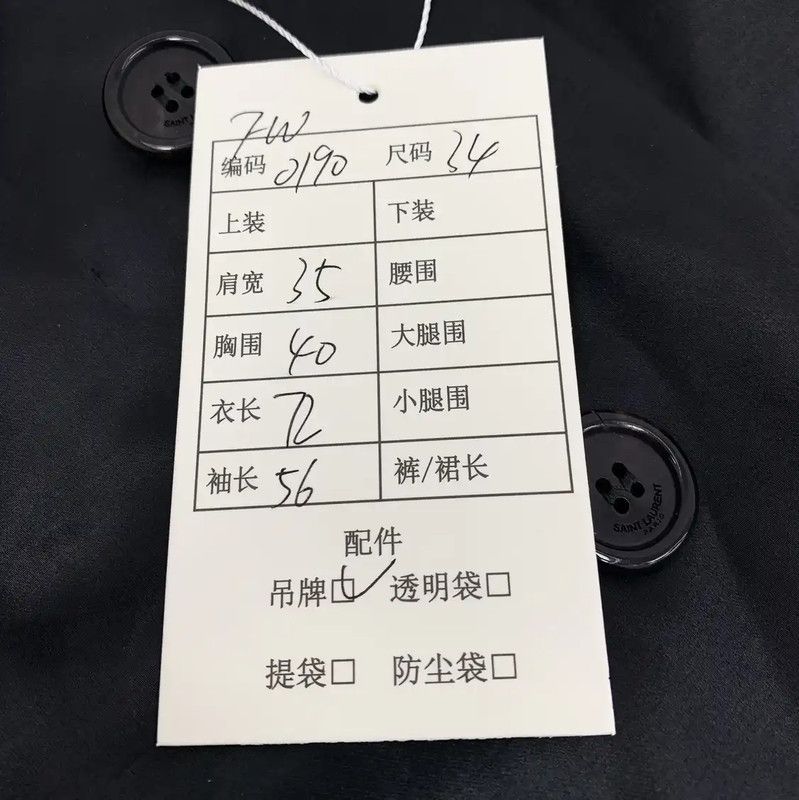 FW
编码 0190 尺码 34
上装 下装
肩宽 35 腰围
胸围 40 大腿围
衣长 72 小腿围
袖长 56 裤/裙长
配件
吊牌☑ 透明袋□
提袋□ 防尘袋□
SAINT LAURENT
PARIS